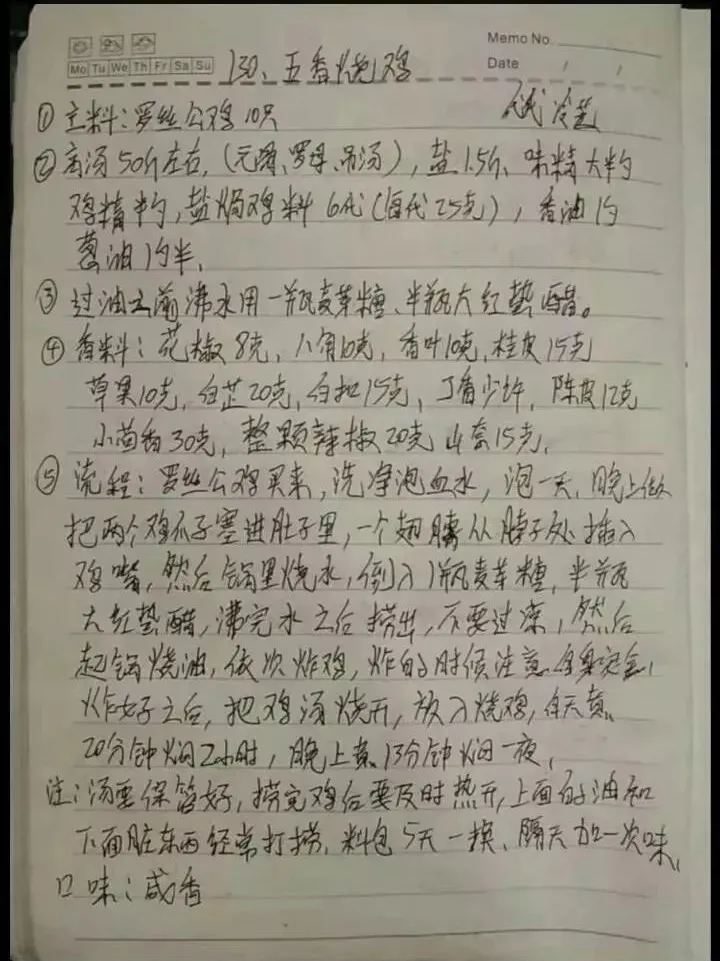 Memo No.
Mo Tu We Th Fr Sa Su
Date / /
130、五香烧鸡
冷菜
① 主料:罗丝公鸡10只
② 高汤50斤左右,(元骨、罗母、吊汤),盐1.5斤、味精大半勺
鸡精半勺,盐焗鸡料6代(每代25克),香油1勺
葱油1勺半,
③ 过油之前沸水用一瓶麦芽糖、半瓶大红浙醋。
④ 香料:花椒8克,八角10克,香叶10克,桂皮15克
草果10克,白芷20克,白扣15克,丁香少许,陈皮12克
小茴香30克,整颗辣椒20克 山奈15克,
⑤ 流程:罗丝公鸡买来,洗净泡血水,泡一天,晚上做
把两个鸡爪子塞进肚子里,一个翅膀从脖子处插入
鸡嘴,然后锅里烧水,倒入1瓶麦芽糖,半瓶
大红浙醋,沸完水之后捞出,不要过凉,然后
起锅烧油,依次炸鸡,炸的时候注意自身安全,
炸好之后,把鸡汤烧开,放入烧鸡,白天煮
20分钟焖2小时,晚上煮13分钟焖一夜,
注:汤要保管好,捞完鸡后要及时热开,上面的油和
下面脏东西经常打捞,料包5天一换、隔天加一次味,
口味:咸香